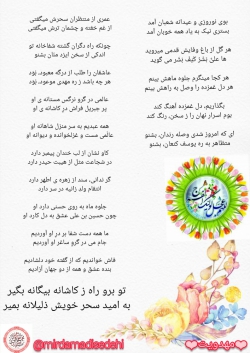 بوی نوروزی و عیدانه شعبان آمد
بستری نیک به یاد همه خوبان آمد
هر گل از باغ وفایش قدمی میروید
ها علی بشر کیف بشر می گوید
هر کجا مینگرم جلوه ماهش بینم
هر دل غمزده را وصل به راهش بینم
بگذاریم، دل غمزده آهنگ کند
بوم اسرار نهان را ز سخن، رنگ کند
ای که امروز شدی وصله رندان، بشنو
متظاهر به ره یوسف کنعان، بشنو
عمری از منتظران سحرش میگفتی
از غم خفته و چشمان ترش میگفتی
چونکه راه دگران گشته شفاخانه تو
اندکی از سخن ایزد منان بشنو
عاشقان را طلب از درگه معبود، بُود
هر چه باشد ز ره مهدی موعود، بُود
عالمی در گرو نرگس مستانه ی او
پر جبریل فراش در کاشانه ی او
همه عیدیم به سر منزل شاهانه او
عالمی مست و غزلخوانده و دیوانه او
کاو نشان از لب خندان پیمبر دارد
در شجاعت مثل از هیبت حیدر دارد
گر ندانی، سند از زهره ی اطهر دارد
انتقام ولد زانیه در سر دارد
جلوه ماه به روی حسنی دارد او
چون حسین بن علی عشق به دل کارد او
ما همه دست شفا بر در او آوردیم
جام می در گرو ساغر او آوردیم
فاش خواندیم که از گفته خود دلشادیم
بنده عشق و همه از دو جهان آزادیم
تو برو راه ز کاشانه بیگانه بگیر
به امید سحر خویش ذلیلانه بمیر
مهدویت